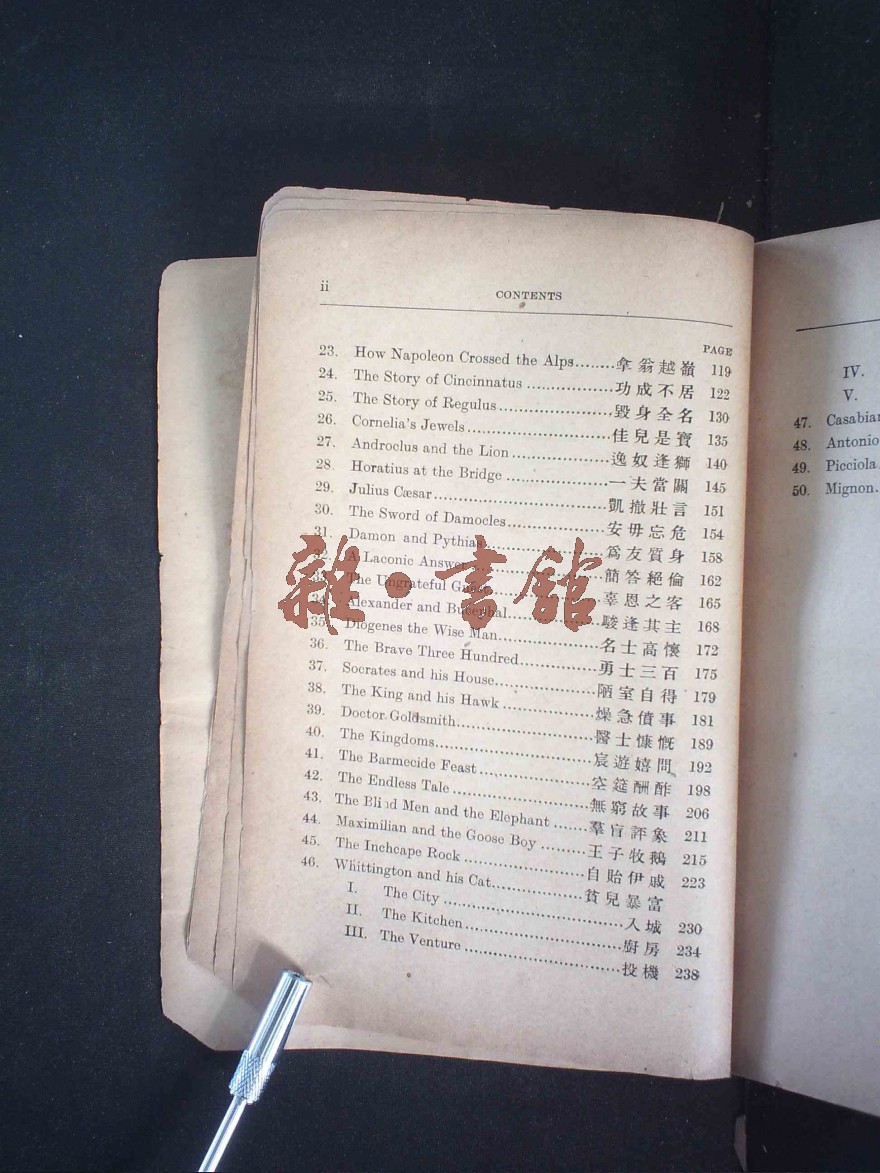 ii
CONTENTS
PAGE
23. How Napoleon Crossed the Alps........拿翁越嶺 119
24. The Story of Cincinnatus..............功成不居 122
25. The Story of Regulus..................毀身全名 130
26. Cornelia's Jewels.....................佳兒是寶 135
27. Androclus and the Lion................逸奴逢獅 140
28. Horatius at the Bridge................一夫當關 145
29. Julius Cæsar..........................凱撤壯言 151
30. The Sword of Damocles.................安毋忘危 154
31. Damon and Pythias.....................爲友質身 158
32. A Laconic Answer......................簡答絕倫 162
33. The Ungrateful Guest..................辜恩之客 165
34. Alexander and Bucephal................駿逢其主 168
35. Diogenes the Wise Man.................名士高懷 172
36. The Brave Three Hundred...............勇士三百 175
37. Socrates and his House................陋室自得 179
38. The King and his Hawk.................燥急僨事 181
39. Doctor Goldsmith......................醫士慷慨 189
40. The Kingdoms..........................宸遊嬉問 192
41. The Barmecide Feast...................空筵酬酢 198
42. The Endless Tale......................無窮故事 206
43. The Blind Men and the Elephant........羣盲評象 211
44. Maximilian and the Goose Boy..........王子牧鵝 215
45. The Inchcape Rock.....................自貽伊戚 223
46. Whittington and his Cat...............貧兒暴富
I. The City..............................入城 230
II. The Kitchen..........................廚房 234
III. The Venture.........................投機 238
雜·書館
IV.
V.
47. Casabian
48. Antonio
49. Picciola
50. Mignon.